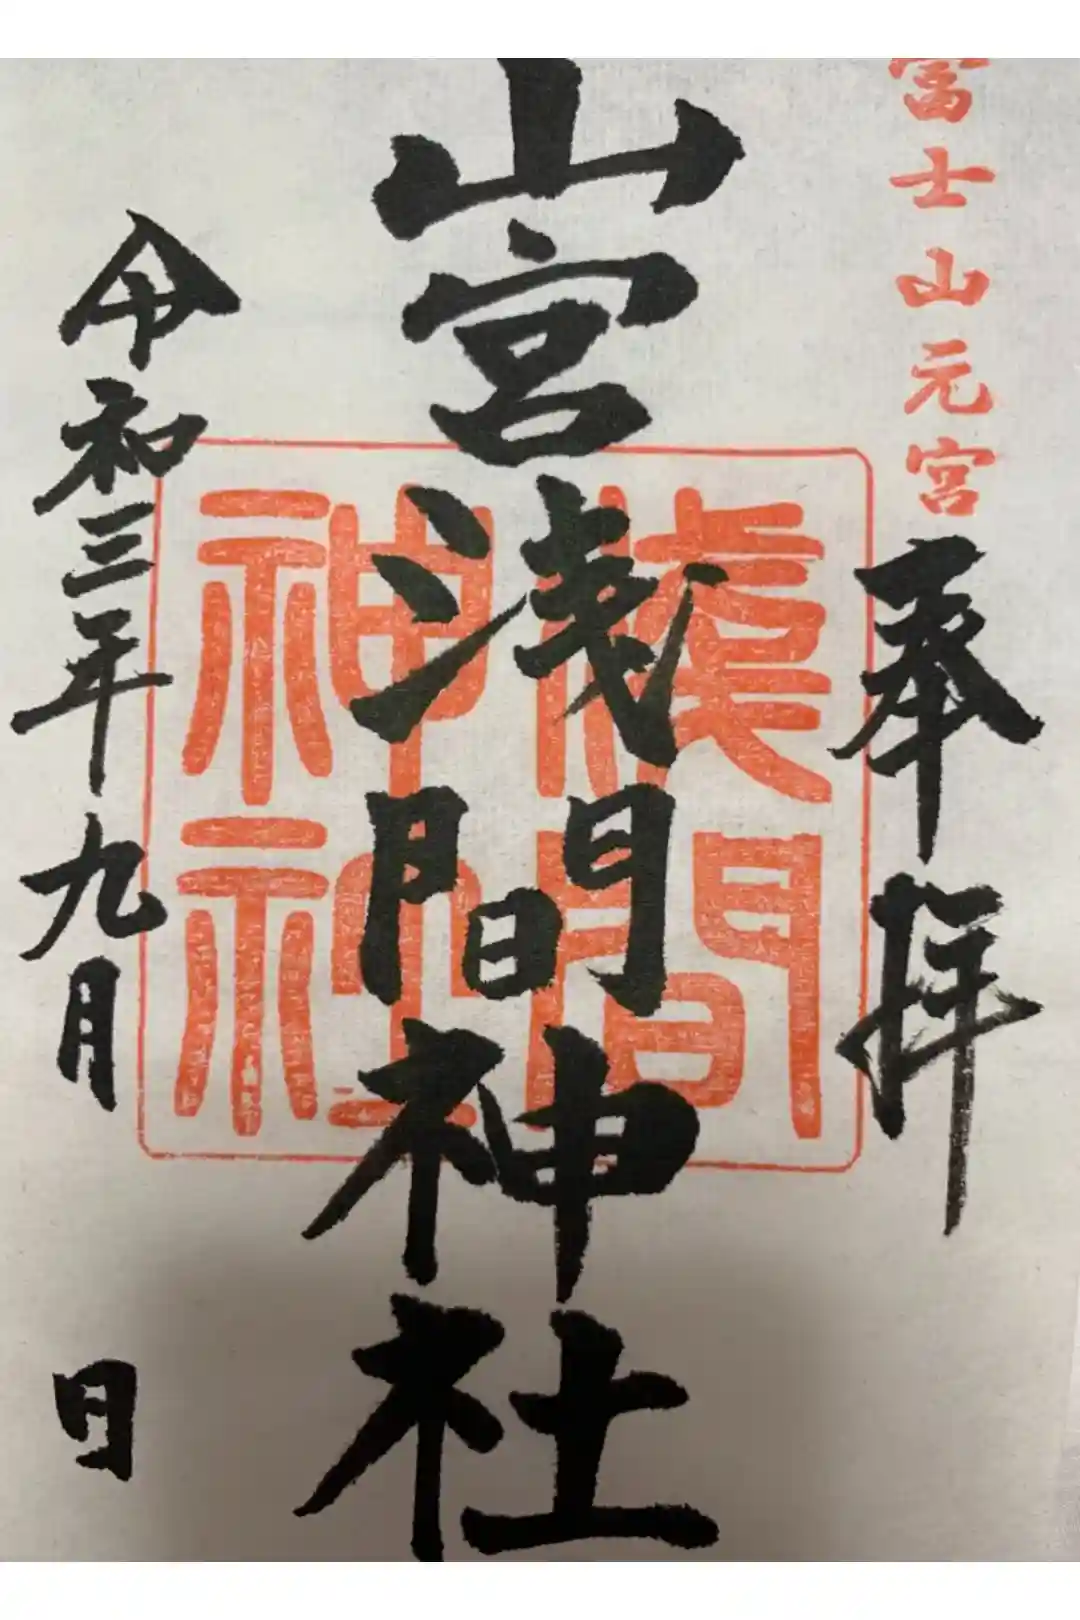 富士山元宮
奉拝
山宮浅間神社
浅間神社
令和三年九月 日